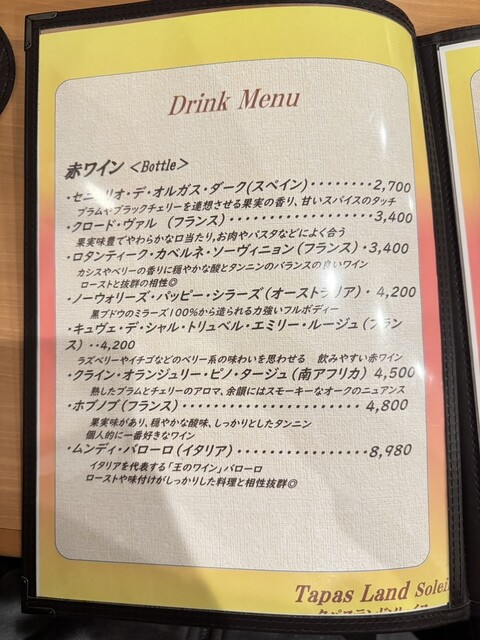 Drink Menu
赤ワイン <Bottle>
・セニョリオ・デ・オルガス・ダーク(スペイン)・・・・・・・・2,700
プラムやブラックチェリーを連想させる果実の香り、甘いスパイスのタッチ
・クロード・ヴァル (フランス)・・・・・・・・・・・・・・・・・・3,400
果実味豊でやわらかな口当たり,お肉やパスタなどによく合う
・ロタンティーク・カベルネ・ソーヴィニョン(フランス)・3,400
カシスやベリーの香りに穏やかな酸とタンニンのバランスの良いワイン
ローストと抜群の相性◎
・ノーウォリーズ・パッピー・シラーズ(オーストラリア)・4,200
黒ブドウのミラーズ100%から造られる力強いフルボディー
・キュヴェ・デ・シャル・トリュベル・エミリー・ルージュ(フラン
ス)・・4,200
ラズベリーやイチゴなどのベリー系の味わいを思わせる 飲みやすい赤ワイン
・クライン・オランジュリー・ピノ・タージュ(南アフリカ) 4,500
熟したプラムとチェリーのアロマ、余韻にはスモーキーなオークのニュアンス
・ホブノブ(フランス)・・・・・・・・・・・・・・・・・・・・・・・4,800
果実味があり、穏やかな酸味、しっかりとしたタンニン
個人的に一番好きなワイン
・ムンディ・バローロ(イタリア)・・・・・・・・・・・・・・・・・8,980
イタリアを代表する「王のワイン」バローロ
ローストや味付けがしっかりした料理と相性抜群◎
Tapas Land Solei